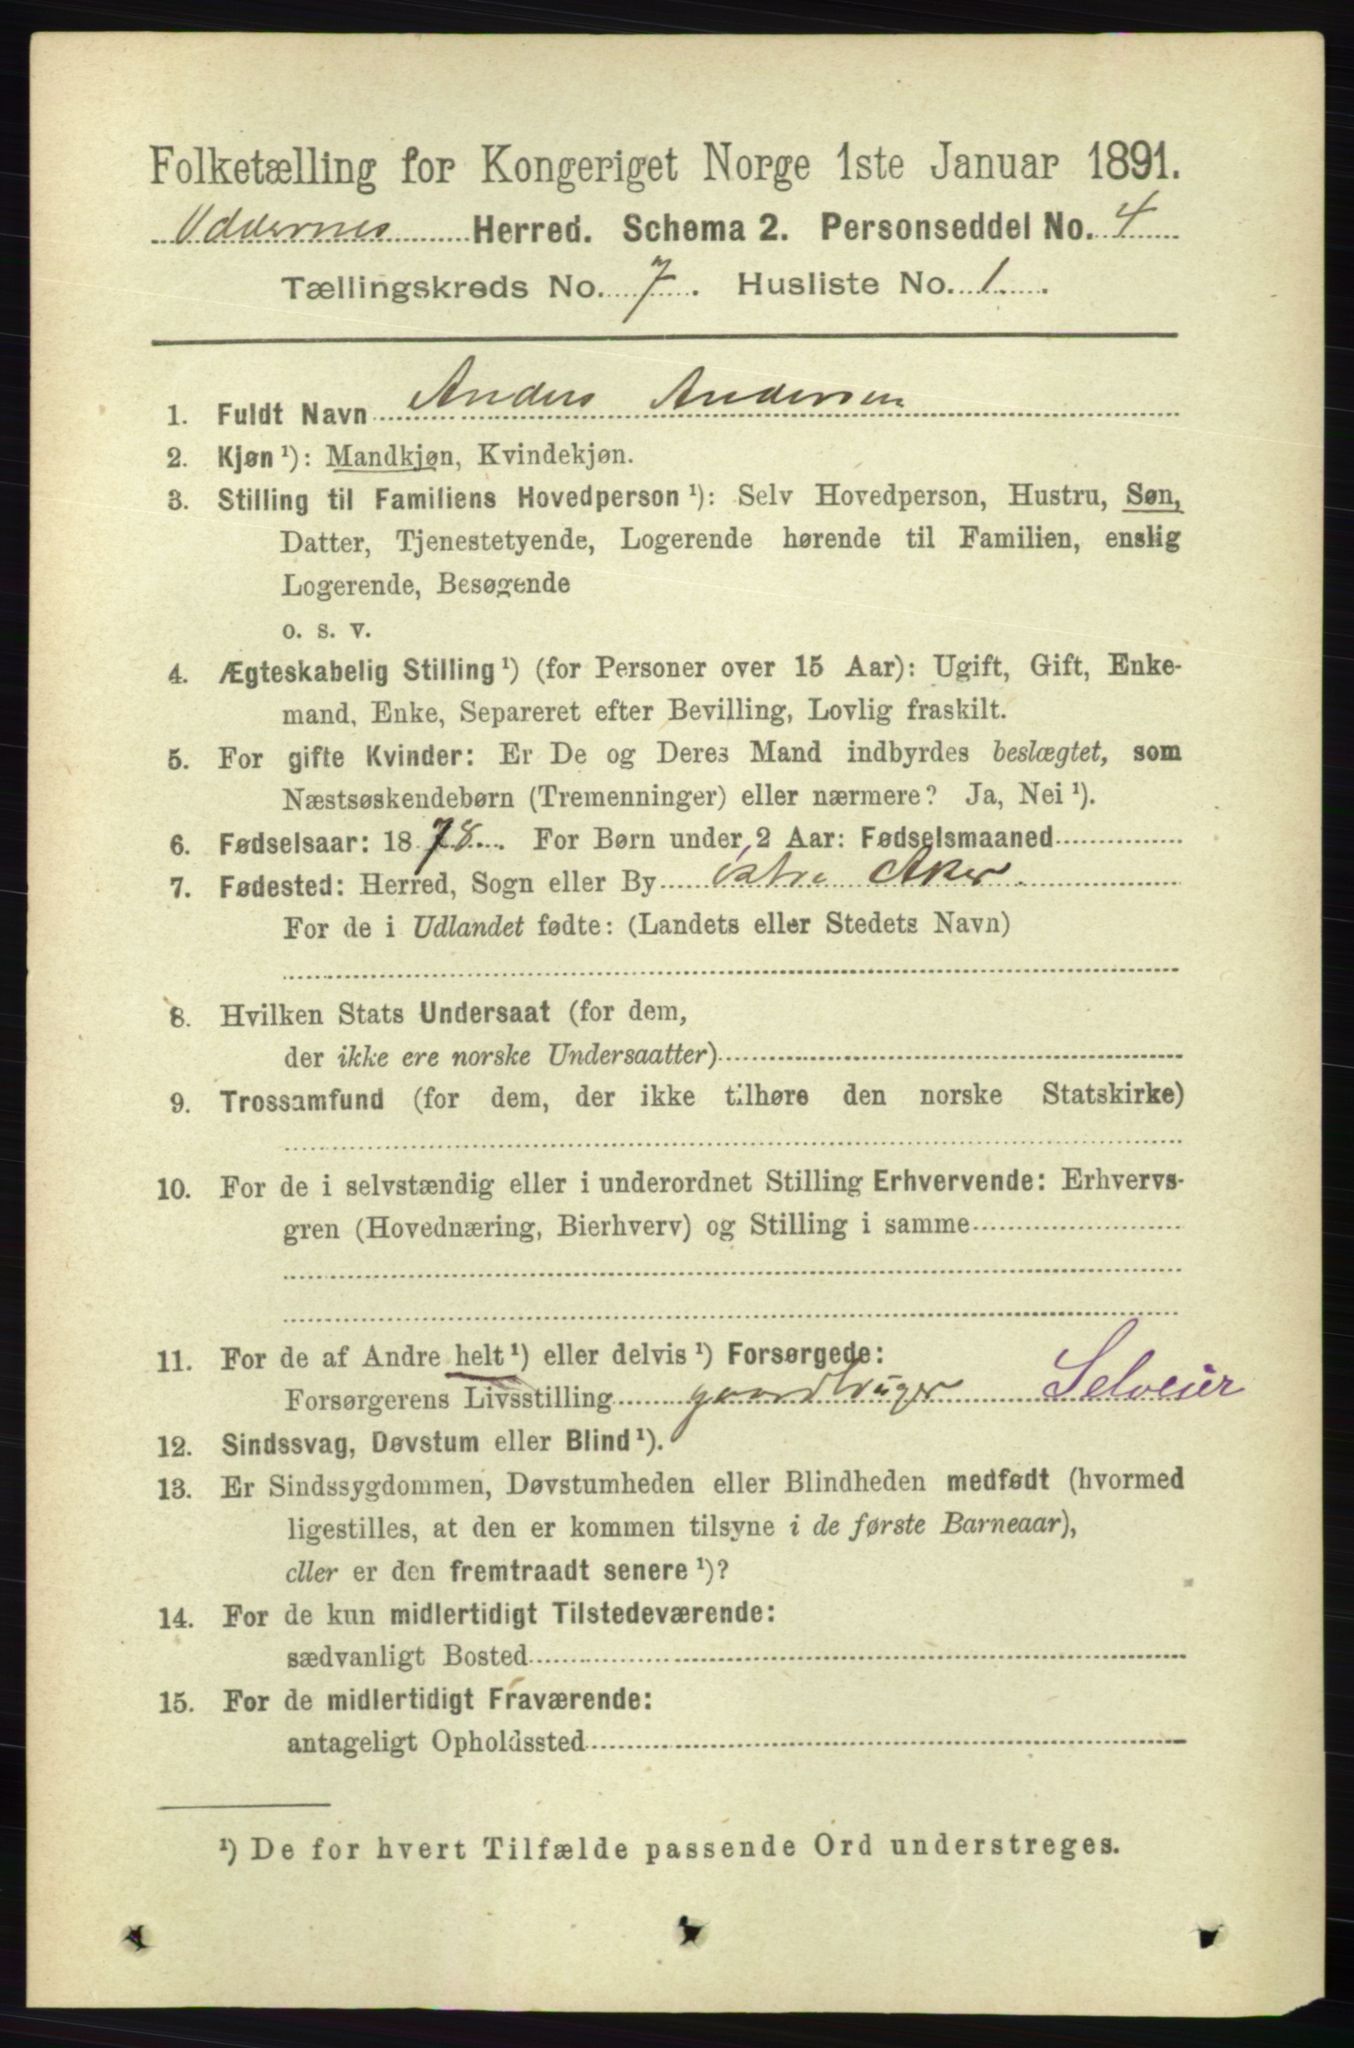 Folketælling for Kongeriget Norge 1ste Januar 1891.
Oddernes Herred. Schema 2. Personseddel No. 4
Tællingskreds No. 7. Husliste No. 1.
1. Fuldt Navn Anders Andersen
2. Kjøn ¹): Mandkjøn, Kvindekjøn.
3. Stilling til Familiens Hovedperson ¹): Selv Hovedperson, Hustru, Søn,
Datter, Tjenestetyende, Logerende hørende til Familien, enslig
Logerende, Besøgende
o. s. v.
4. Ægteskabelig Stilling ¹) (for Personer over 15 Aar): Ugift, Gift, Enke-
mand, Enke, Separeret efter Bevilling, Lovlig fraskilt.
5. For gifte Kvinder: Er De og Deres Mand indbyrdes beslægtet, som
Næstsøskendebørn (Tremenninger) eller nærmere? Ja, Nei ¹).
6. Fødselsaar: 1878. For Børn under 2 Aar: Fødselsmaaned
7. Fødested: Herred, Sogn eller By østre Aker.
For de i Udlandet fødte: (Landets eller Stedets Navn)
8. Hvilken Stats Undersaat (for dem,
der ikke ere norske Undersaatter)
9. Trossamfund (for dem, der ikke tilhøre den norske Statskirke)
10. For de i selvstændig eller i underordnet Stilling Erhvervende: Erhvervs-
gren (Hovednæring, Bierhverv) og Stilling i samme
11. For de af Andre helt ¹) eller delvis ¹) Forsørgede:
Forsørgerens Livsstilling gaardbruger Selveier
12. Sindssvag, Døvstum eller Blind ¹).
13. Er Sindssygdommen, Døvstumheden eller Blindheden medfødt (hvormed
ligestilles, at den er kommen tilsyne i de første Barneaar),
eller er den fremtraadt senere ¹)?
14. For de kun midlertidigt Tilstedeværende:
sædvanligt Bosted
15. For de midlertidigt Fraværende:
antageligt Opholdssted
¹) De for hvert Tilfælde passende Ord understreges.